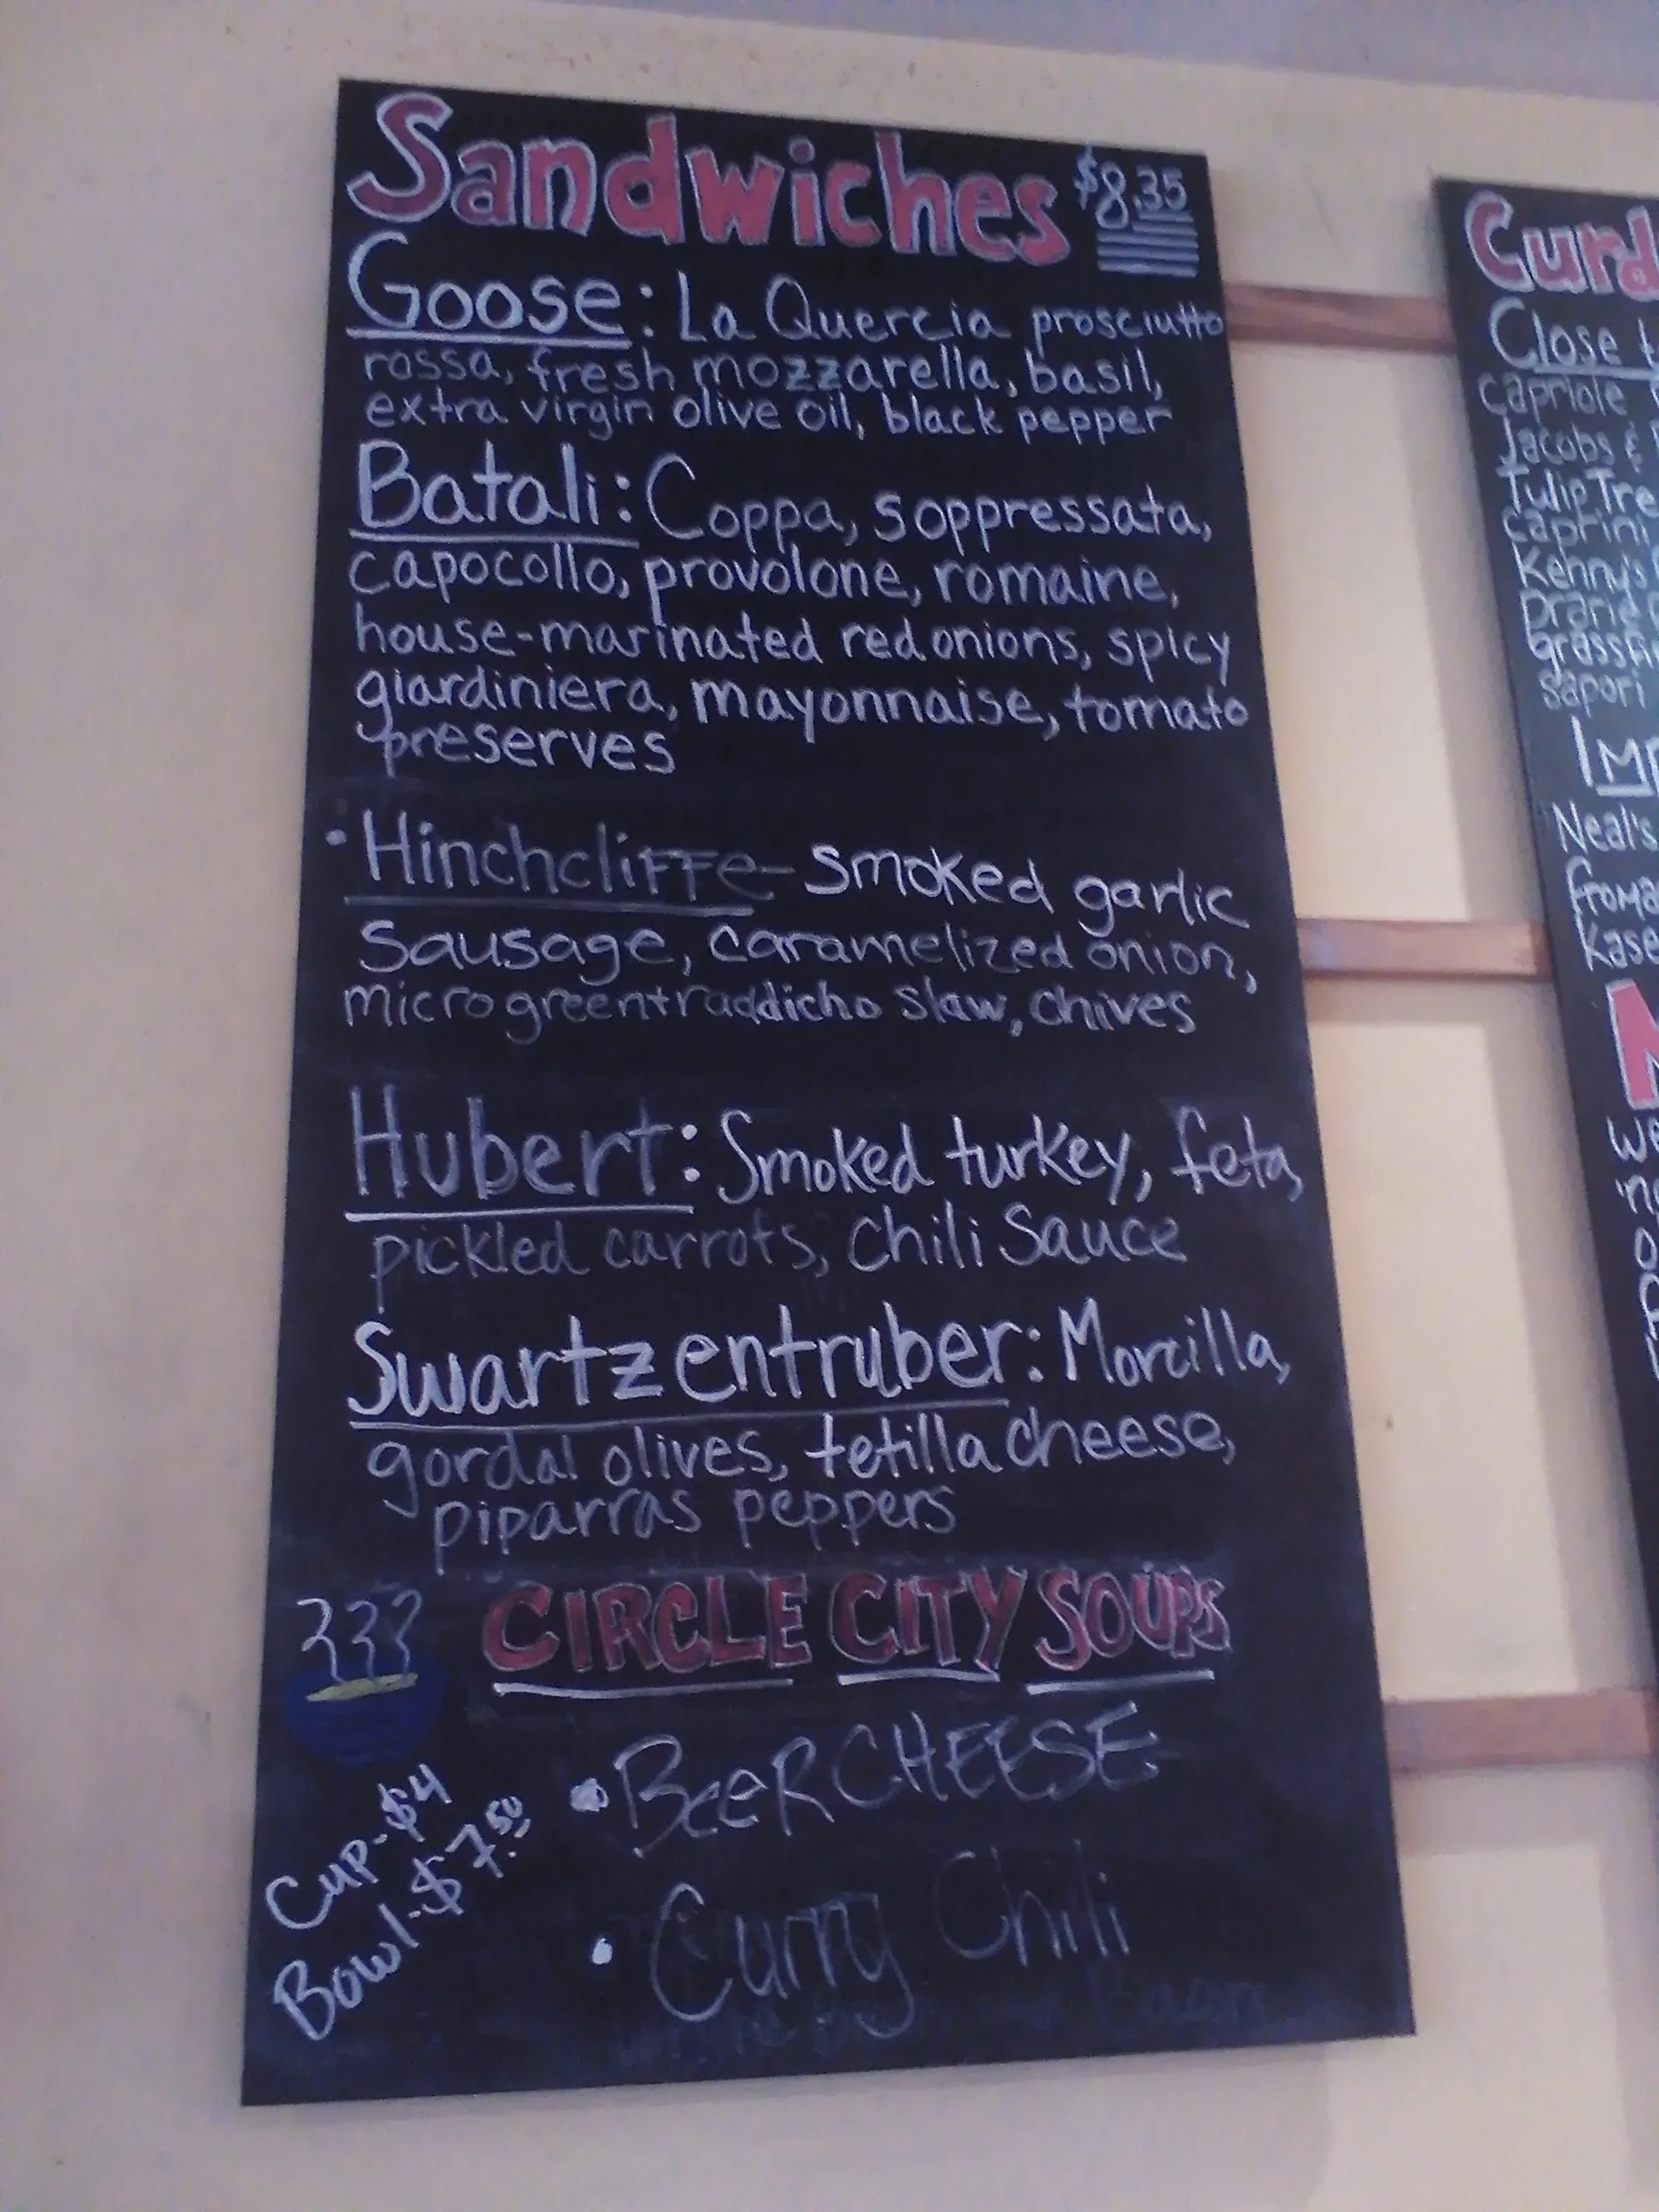 Sandwiches $8.35
Goose: La Quercia prosciutto
rossa, fresh mozzarella, basil,
extra virgin olive oil, black pepper
Batali: Coppa, soppressata,
capocollo, provolone, romaine,
house-marinated red onions, spicy
giardiniera, mayonnaise, tomato
preserves
• Hinchcliffe - smoked garlic
sausage, caramelized onion,
microgreen + raddicho slaw, chives
Hubert: Smoked turkey, feta,
pickled carrots, chili sauce
Swartzentruber: Morcilla,
gordal olives, tetilla cheese,
piparras peppers
CIRCLE CITY SOUPS
Cup-$4
Bowl-$7.50
• BEER CHEESE
• Curry Chili
Curd
Close
capriole
Jacobs &
Tulip Tre
Caprini
Kenny's
Neal's
Kase